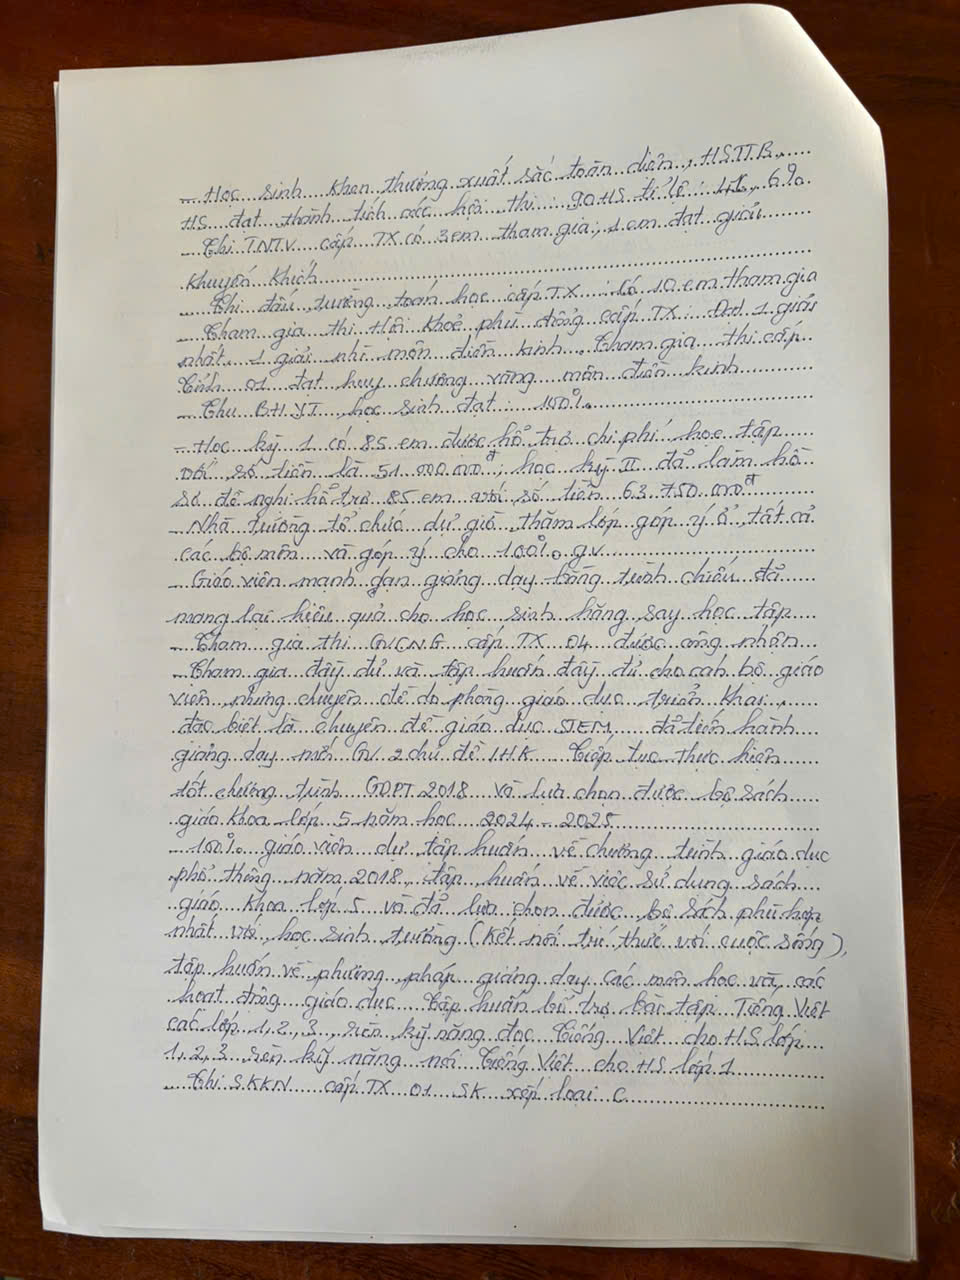 - Học sinh khen thưởng xuất sắc toàn diện, HSTTB,
HS đạt thành tích các hội thi: 90 HS tỉ lệ: 6%
Thi TNTV cấp TX có 3 em tham gia, 1 em đạt giải
khuyến khích
Thi đấu trường toán học cấp TX: Có 10 em tham gia
Tham gia thi Hội khoẻ phù đổng cấp TX: Đạt 1 giải
nhất, 1 giải nhì môn điền kinh. Tham gia thi cấp
Tỉnh 01 đạt huy chương vàng môn điền kinh
- Thu BHYT học sinh đạt: 100%
- Học kỳ 1 có 85 em được hỗ trợ chi phí học tập
với số tiền là 51 000 000đ, học kỳ II đã làm hồ
sơ đề nghị hỗ trợ 85 em với số tiền 63 750 000đ
Nhà trường tổ chức dự giờ thăm lớp góp ý ở tất cả
các bộ môn và góp ý cho 100% gv
Giáo viên mạnh dạn giảng dạy bằng trình chiếu đã
mang lại hiệu quả cho học sinh hăng say học tập
Tham gia thi GVCNG cấp TX 04 được công nhận
Tham gia đầy đủ và tập huấn đầy đủ cho cán bộ giáo
viên những chuyên đề do phòng giáo dục triển khai,
đặc biệt là chuyên đề giáo dục STEM, đã tiến hành
giảng dạy mỗi GV 2 chủ đề 1HK Tiếp tục thực hiện
tốt chương trình GDPT 2018 và lựa chọn được bộ sách
giáo khoa lớp 5 năm học 2024 - 2025
100% giáo viên dự tập huấn về chương trình giáo dục
phổ thông năm 2018, tập huấn về việc sử dụng sách
giáo khoa lớp 5 và đã lựa chọn được bộ sách phù hợp
nhất với học sinh trường (Kết nối tri thức với cuộc sống),
tập huấn về phương pháp giảng dạy các môn học và các
hoạt động giáo dục Tập huấn bổ trợ bài tập Tiếng Việt
các lớp 1, 2, 3, rèn kỹ năng đọc Tiếng Việt cho HS lớp
1, 2, 3 rèn kỹ năng nói Tiếng Việt cho HS lớp 1
Thi SKKN cấp TX 01 SK xếp loại C